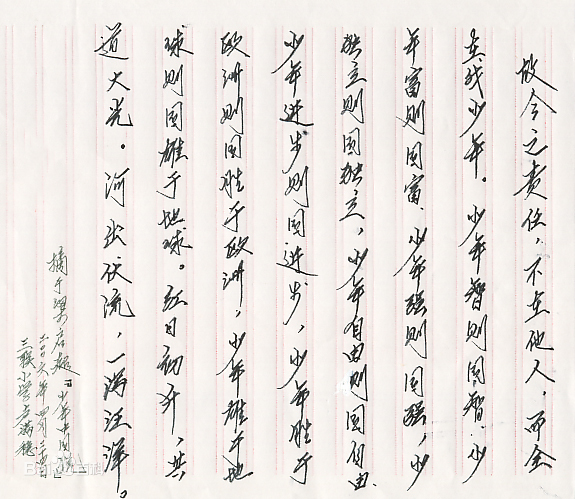 故今之责任，不在他人，而全
在我少年。少年智则国智，少
年富则国富、少年强则国强，少
独立则国独立，少年自由则国自由、
少年进步则国进步，少年胜于
欧洲则国胜于欧洲，少年雄于地
球则国雄于地球。红日初升，其
道大光。河出伏流，一泻汪洋。
摘于梁启超『少年中国说』
二00六年四月二十
三联小学